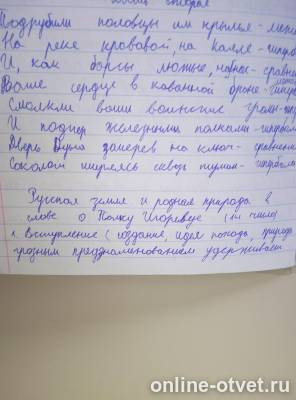 Подрубили половцы им крылья - мета
На реке кровавой, на Каяле -
И, как барсы лютые, - сравне
Ваше сердце в кованной броне -
Смолкли ваши воинские
И подпер железными полками -
Дверь Дуная заперев на ключ - сравнение
Соколом ширяясь сквозь туман -
Русская земля и родная природа в
слове о Полку Игореве (
1. Вступление ( создание, идея похода, природа
грозным предзнаменованием удерживает
online-otvet.ru